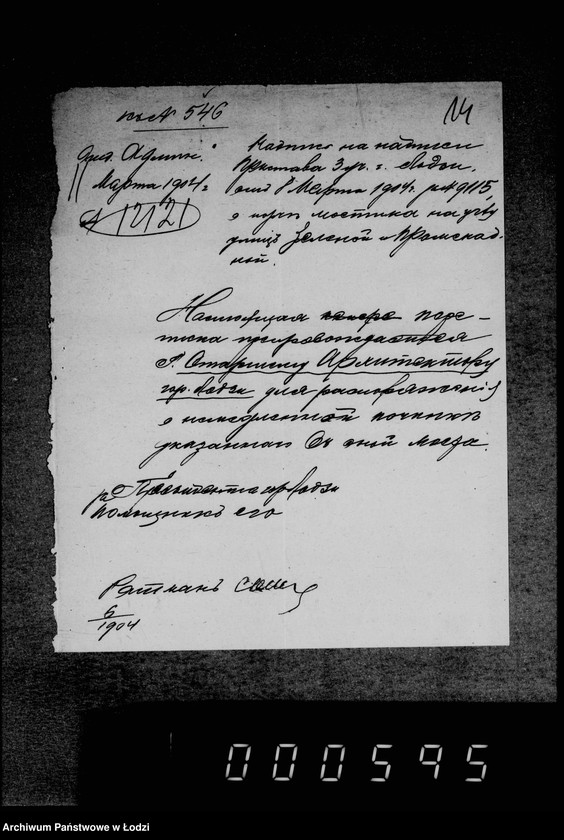 № 546
14
Адмн.
11 Марта 1904 г.
№ 12121
Надпись на надписи
Пристава 3 уч. г. Лодзи,
отъ 8 Марта 1904 г. № 9115,
о мостика на углу
улицъ Зеленой и Променад-
ной.
Настоящая пере-
писка препровождается
Г. Старшему Архитектору
гор. Лодзи для распоряженія
о немедленной починкѣ
указаннаго въ ней моста.
Президента гор. Лодзи
Помощникъ его
Ратманъ
1904
000595
Archiwum Państwowe w Łodzi